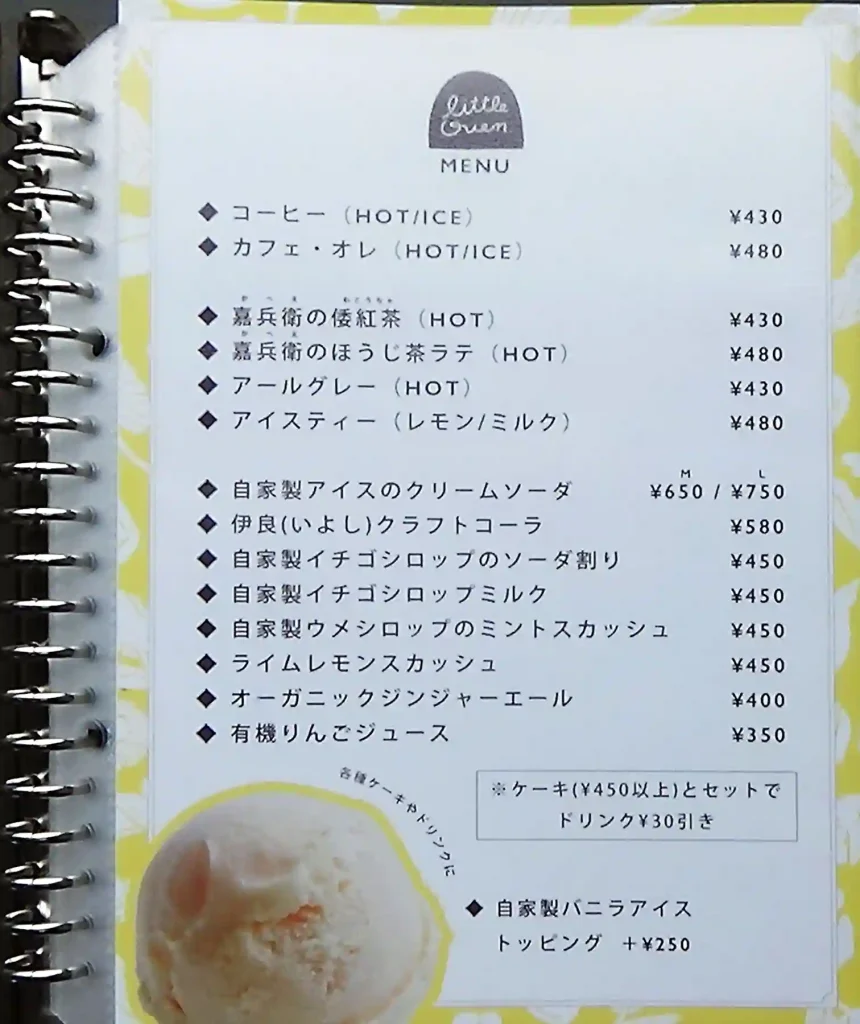 little
Ouen
MENU
◆ コーヒー（HOT/ICE） ¥430
◆ カフェ・オレ（HOT/ICE） ¥480
かへえ わこうちゃ
◆ 嘉兵衛の倭紅茶（HOT） ¥430
かへえ
◆ 嘉兵衛のほうじ茶ラテ（HOT） ¥480
◆ アールグレー（HOT） ¥430
◆ アイスティー（レモン/ミルク） ¥480
M L
◆ 自家製アイスのクリームソーダ ¥650 / ¥750
◆ 伊良(いよし)クラフトコーラ ¥580
◆ 自家製イチゴシロップのソーダ割り ¥450
◆ 自家製イチゴシロップミルク ¥450
◆ 自家製ウメシロップのミントスカッシュ ¥450
◆ ライムレモンスカッシュ ¥450
◆ オーガニックジンジャーエール ¥400
◆ 有機りんごジュース ¥350
各種ケーキやドリンクに
※ケーキ(¥450以上)とセットで
ドリンク¥30引き
◆ 自家製バニラアイス
トッピング ＋¥250